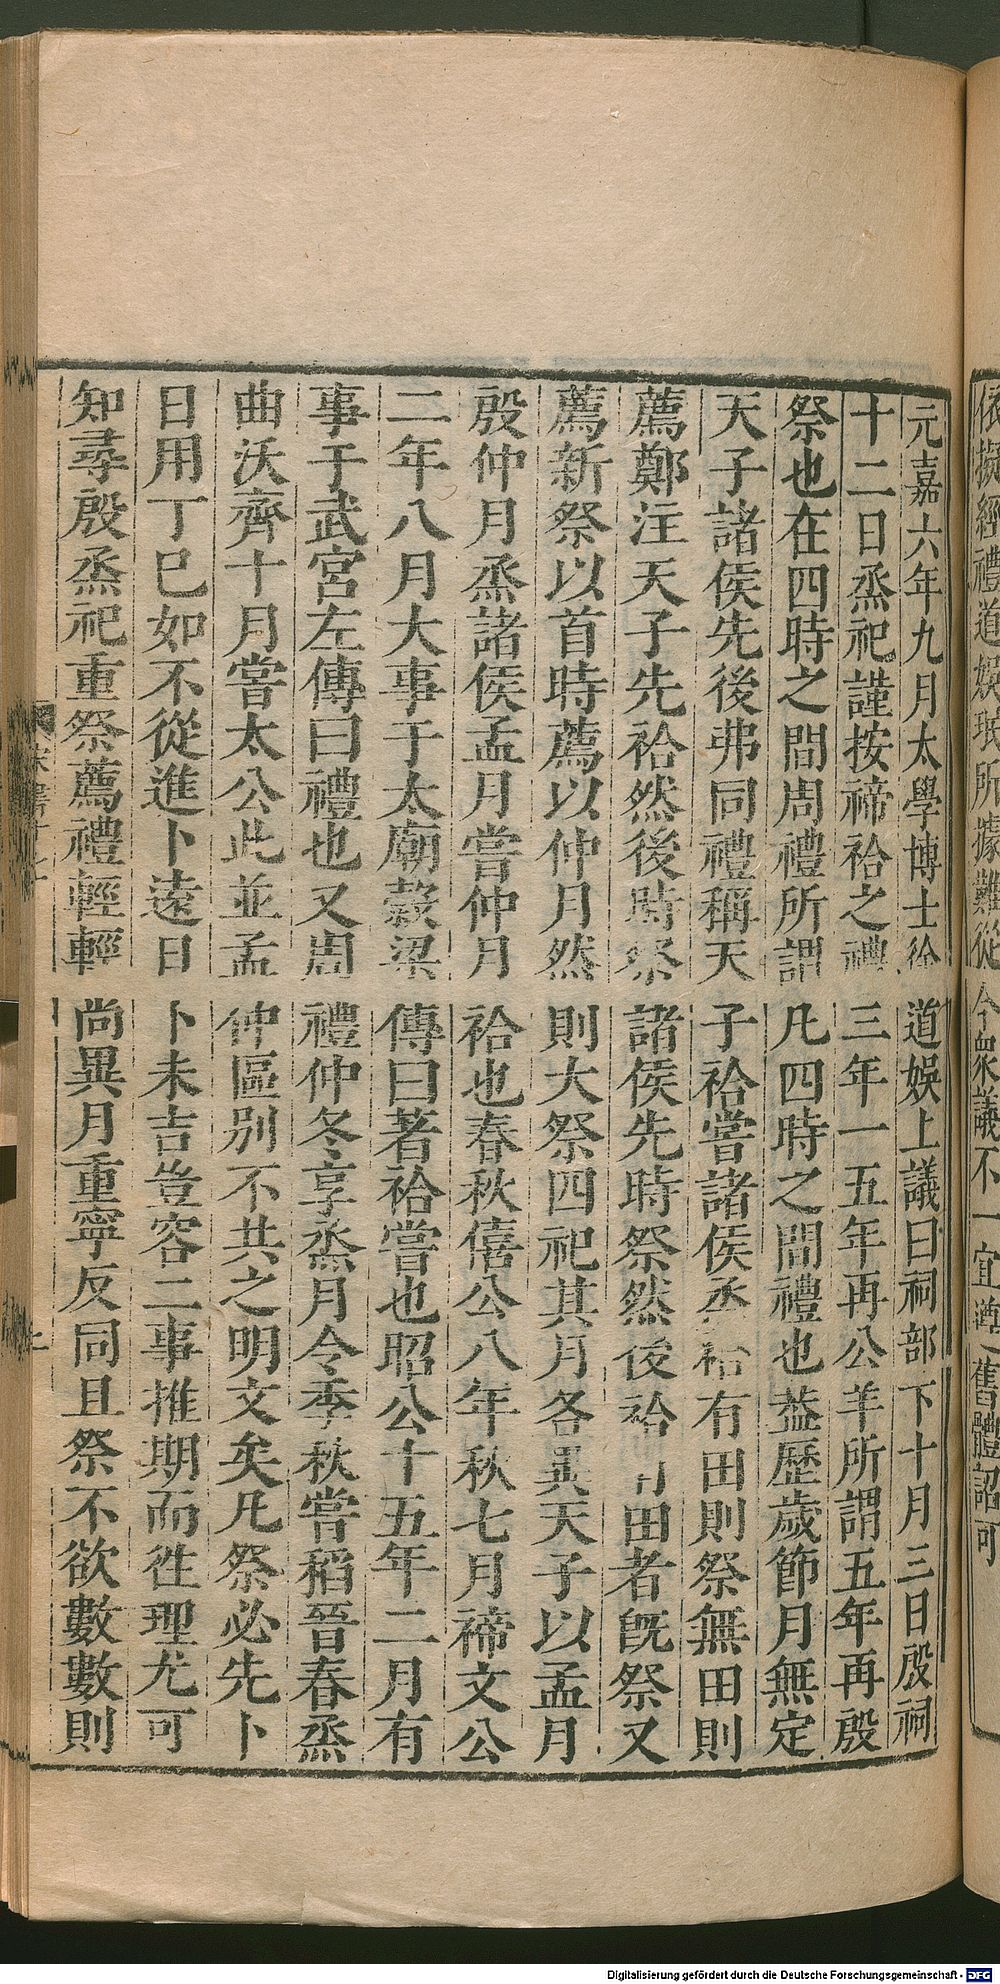 依擬經禮道娛珉所據難從今衆議不一宜遵舊體詔可
元嘉六年九月太學博士徐道娛上議曰祠部下十月三日殷祠
十二日烝祀謹按禘祫之禮三年一五年再公羊所謂五年再殷
祭也在四時之間周禮所謂凡四時之間禮也葢歷歲節月無定
天子諸侯先後弗同禮稱天子祫嘗諸侯烝祫有田則祭無田則
薦鄭注天子先祫然後時祭諸侯先時祭然後祫有田者旣祭又
薦新祭以首時薦以仲月然則大祭四祀其月各異天子以孟月
殷仲月烝諸侯孟月嘗仲月祫也春秋僖公八年秋七月禘文公
二年八月大事于太廟穀梁傳曰著祫嘗也昭公十五年二月有
事于武宮左傳曰禮也又周禮仲冬享烝月令季秋嘗稻晉春烝
曲沃齊十月嘗太公此並孟仲區别不共之明文矣凡祭必先卜
日用丁巳如不從進卜遠日卜未吉豈容二事推期而徃理尤可
知尋殷烝祀重祭薦禮輕輕尚異月重寧反同且祭不欲數數則
Digitalisierung gefördert durch die Deutsche Forschungsgemeinschaft - DFG